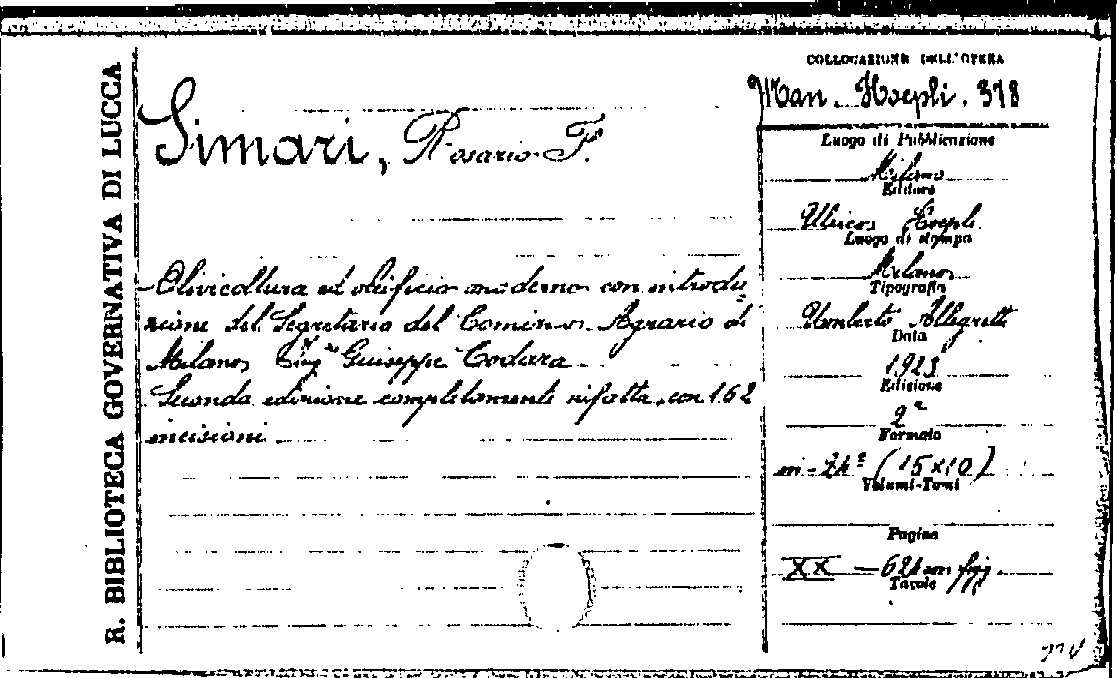 R. BIBLIOTECA GOVERNATIVA DI LUCCA
Simari, Rosario F.
Olivicoltura ed oleificio moderno con introdu-
zione del Segretario del Comizio Agrario di
Milano Ing. Giuseppe Codara
Seconda edizione completamente rifatta, con 162
incisioni
COLLOCAZIONE DELL'OPERA
Man. Hoepli. 378
Luogo di Pubblicazione
Milano
Editore
Ulrico Hoepli
Luogo di stampa
Milano
Tipografia
Umberto Allegretti
Data
1923
Edizione
2ª
Formato
in-24º (15x10)
Volumi-Tomi
Pagine
XX - 621 con figg.
Tavole